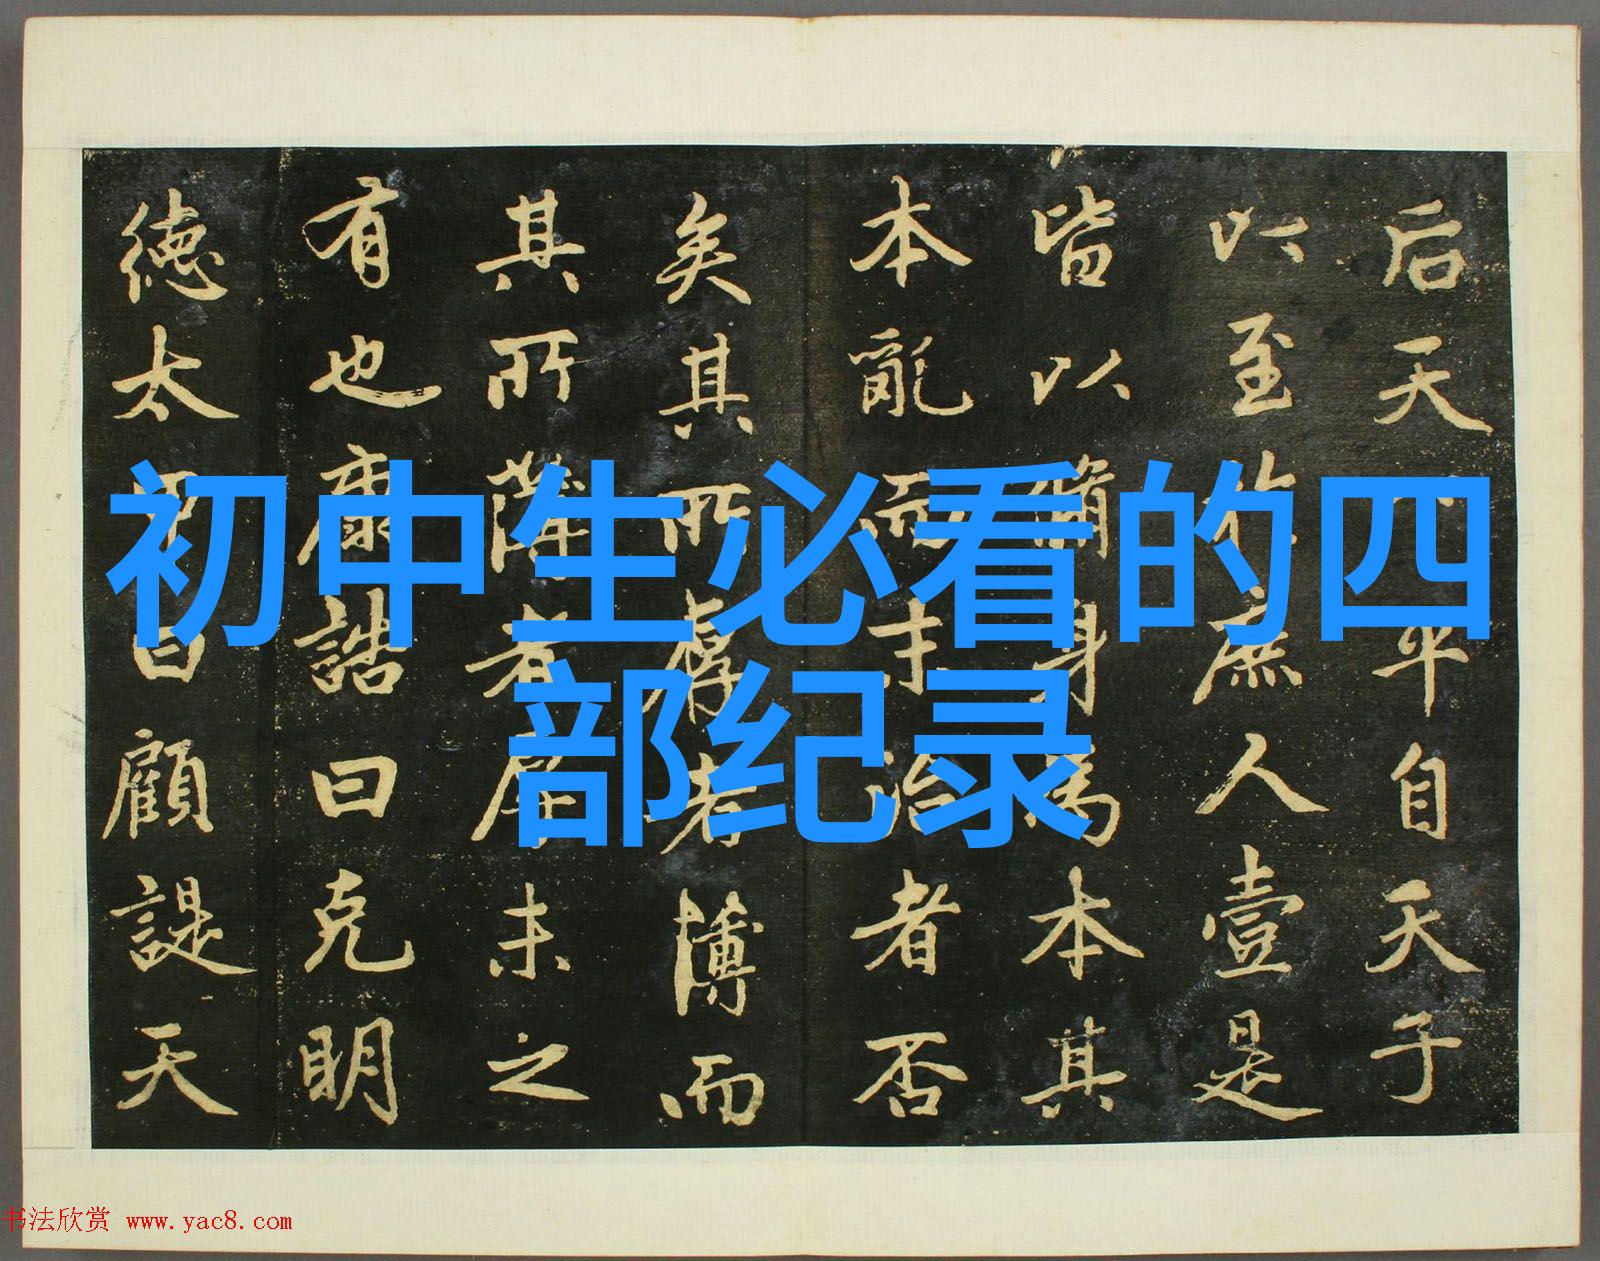 初中生必看的四
部纪录
后天下平自天子
以至於庶人壹是
皆以脩身為本其
本亂而末治者否
矣其所厚者薄而
其所薄者厚未之
有也康誥曰克明
德太甲曰顧諟天
书法欣赏 www.yac8.com